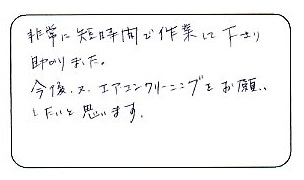 非常に短時間で作業して下さり
助かりました。
今後、又、エアコンクリーニングをお願い
したいと思います。